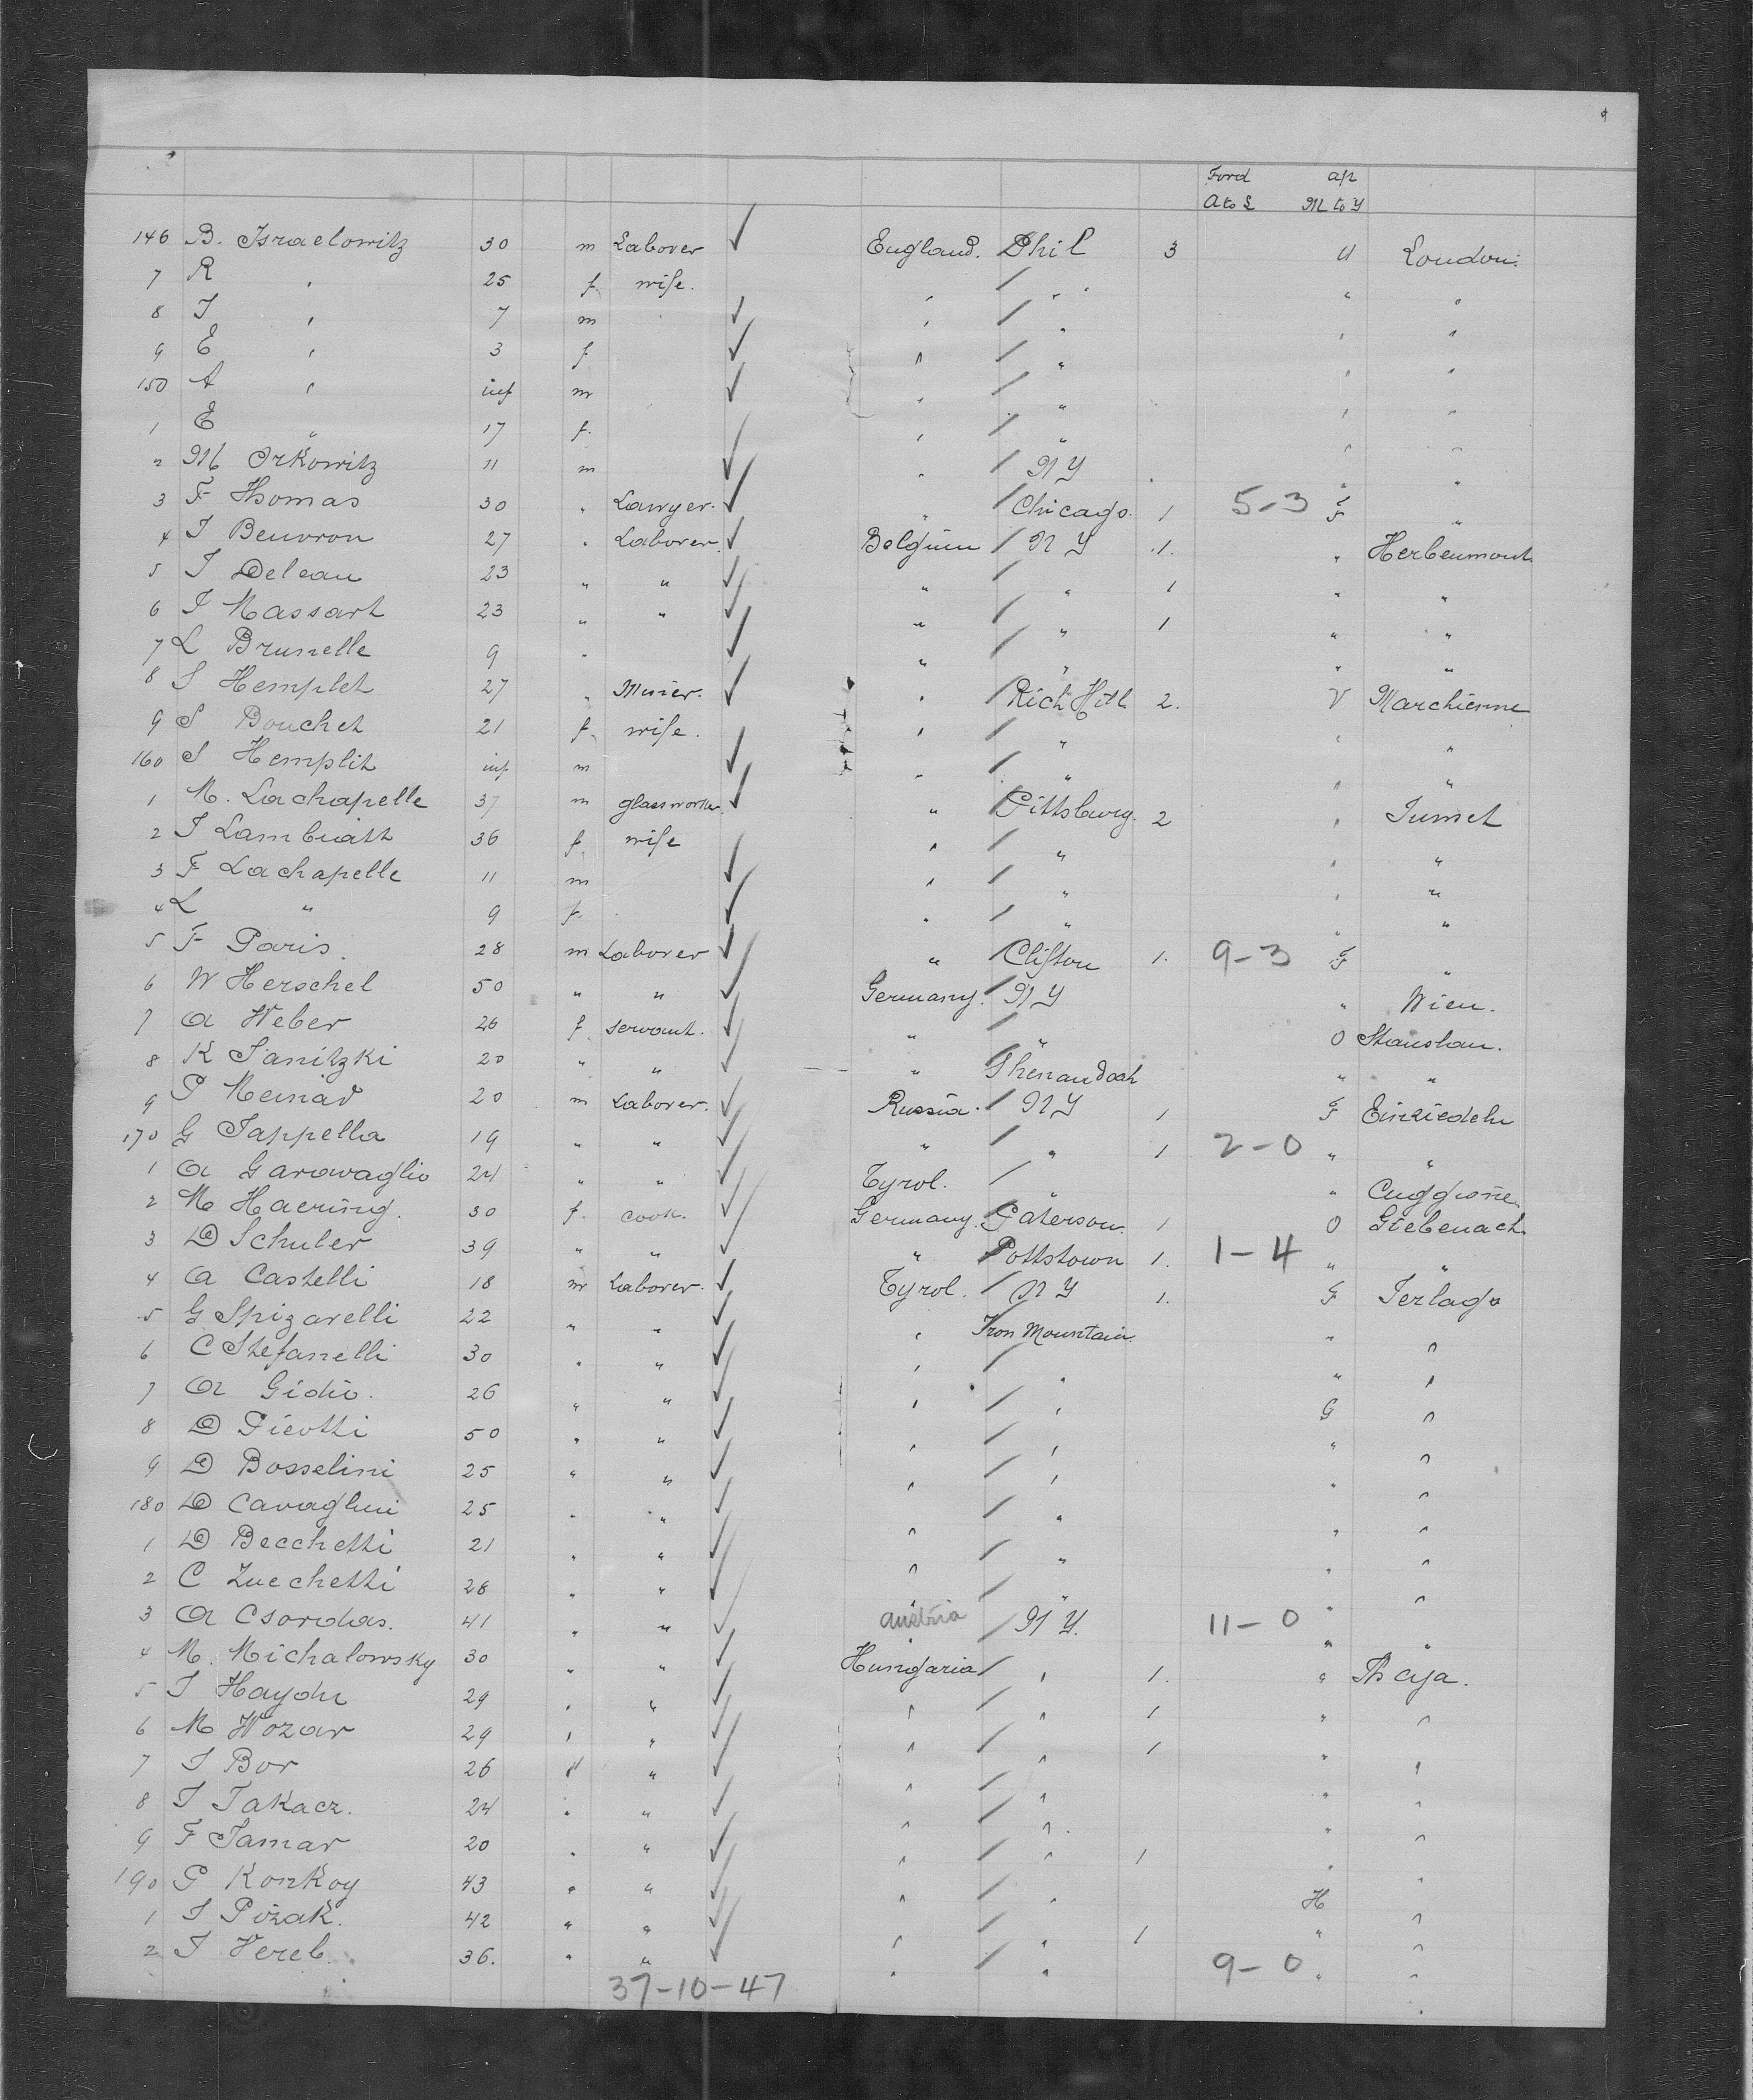 Ford ap
A to L M to Y
146 B. Israelowitz 30 m Laborer England. Phil 3 U London.
7 R " 25 f. wife. " " " "
8 I " 7 m " " " "
9 E " 3 f. " " " "
150 A " inf m " " " "
1 E " 17 f. " " " "
2 M Orkowitz 11 m " N Y " "
3 F Thomas 30 " Lawyer. " Chicago. 1 5-3 F "
4 J Beuvron 27 " Laborer. Belgium N Y 1. " Herbeumont.
5 J Deleau 23 " " " " 1 " "
6 J Massart 23 " " " " 1 " "
7 L Brunelle 9 " " " " "
8 S Hemplet 27 " Miner. " Rich Hill 2. V Marchienne
9 S Bouchet 21 f. wife. " " " "
160 S Hemplit inf m " " " "
1 M. Lachapelle 37 m glassworker. " Pittsburg. 2 " Jumet
2 J Lambiatt 36 f. wife " " " "
3 F Lachapelle 11 m " " " "
4 L " 9 f. " " " "
5 F Paris. 28 m Laborer " Clifton 1. 9-3 F "
6 W Herschel 50 " " Germany. N Y " Wien.
7 A Weber 26 f servant. " " O Stanslau.
8 K Janitzki 20 " " " Shenandoah " "
9 P Meinad 20 m Laborer. Russia. N Y 1 F Einsiedeln
170 G Jappella 19 " " " " 1 2-0 " "
1 A Garavaglio 24 " " Tyrol. " " Cuggione.
2 M Haering. 30 f. cook. Germany. Paterson. 1 O Giebenach
3 D Schuler 39 " " " Pottstown 1. 1-4 " "
4 A Castelli 18 m Laborer. Tyrol. N Y 1. F Terlago
5 G Spizarelli 22 " " " Iron Mountain. " "
6 C Stefanelli 30 " " " " " "
7 A Gidio. 26 " " " " G "
8 D Pieotti 50 " " " " " "
9 D Bosselini 25 " " " " " "
180 D Cavaglini 25 " " " " " "
1 D Becchetti 21 " " " " " "
2 C Zucchetti 28 " " " " " "
3 A Csordas. 41 " " austria N Y. 11-0 " "
4 M. Michalowsky 30 " " Hungaria " 1. " Thaya.
5 J Haydu 29 " " " " 1 " "
6 M Wozar 29 " " " " 1 " "
7 J Bor 26 " " " " " "
8 J Takacz. 24 " " " " " "
9 F Tamar 20 " " " " 1 " "
190 P Konkoy 43 " " " " H "
1 J Pozak. 42 " " " " 1 " "
2 J Vereb. 36. " " " " 9-0 " "
37-10-47